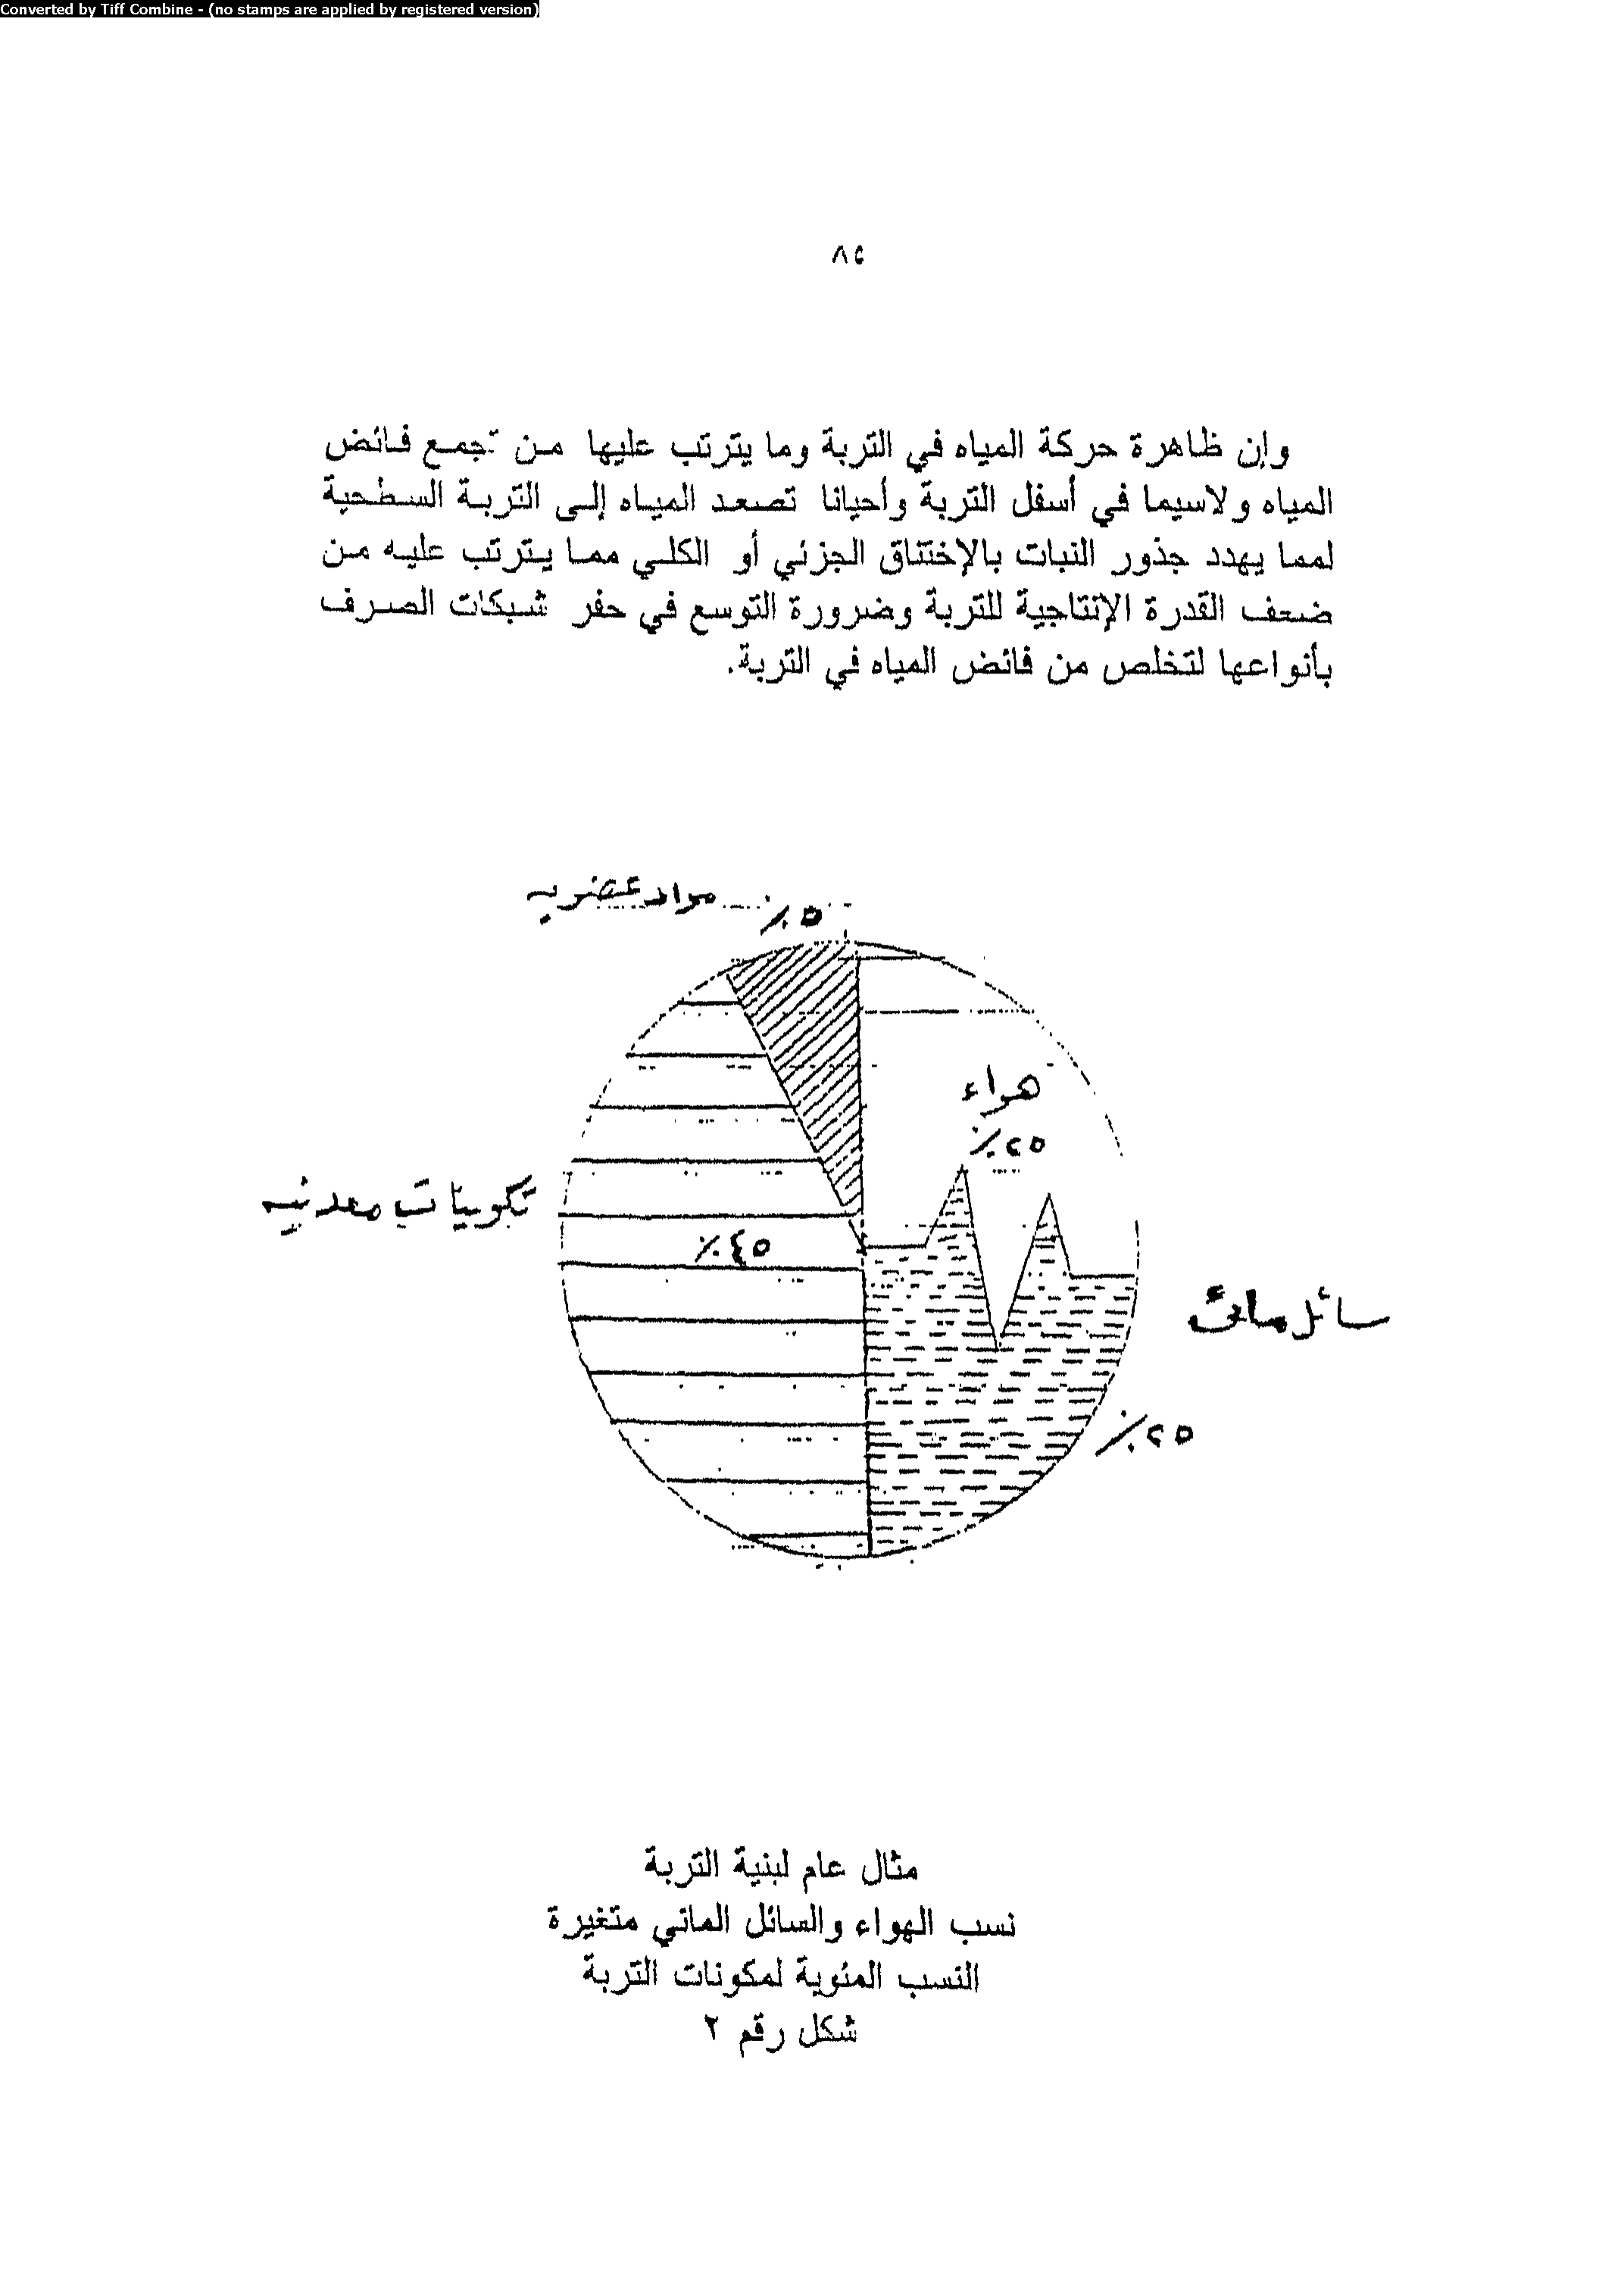 Converted by Tiff Combine - (no stamps are applied by registered version)
٨٥
وإن ظاهرة حركة المياه في التربة وما يترتب عليها من تجمع فائض
المياه ولاسيما في أسفل التربة وأحيانا تصعد المياه إلى التربة السطحية
لمما يهدد جذور النبات بالإختناق الجزئي أو الكلي مما يترتب عليه من
ضعف القدرة الإنتاجية للتربة وضرورة التوسع في حفر شبكات الصرف
بأنواعها لتخلص من فائض المياه في التربة.
مواد عضويه
٥٪
هواء
٢٥٪
معدنيه
٤٥٪
سائل مائى
٢٥٪
مثال عام لبنية التربة
نسب الهواء والسائل المائي متغيرة
النسب المئوية لمكونات التربة
شكل رقم ٢